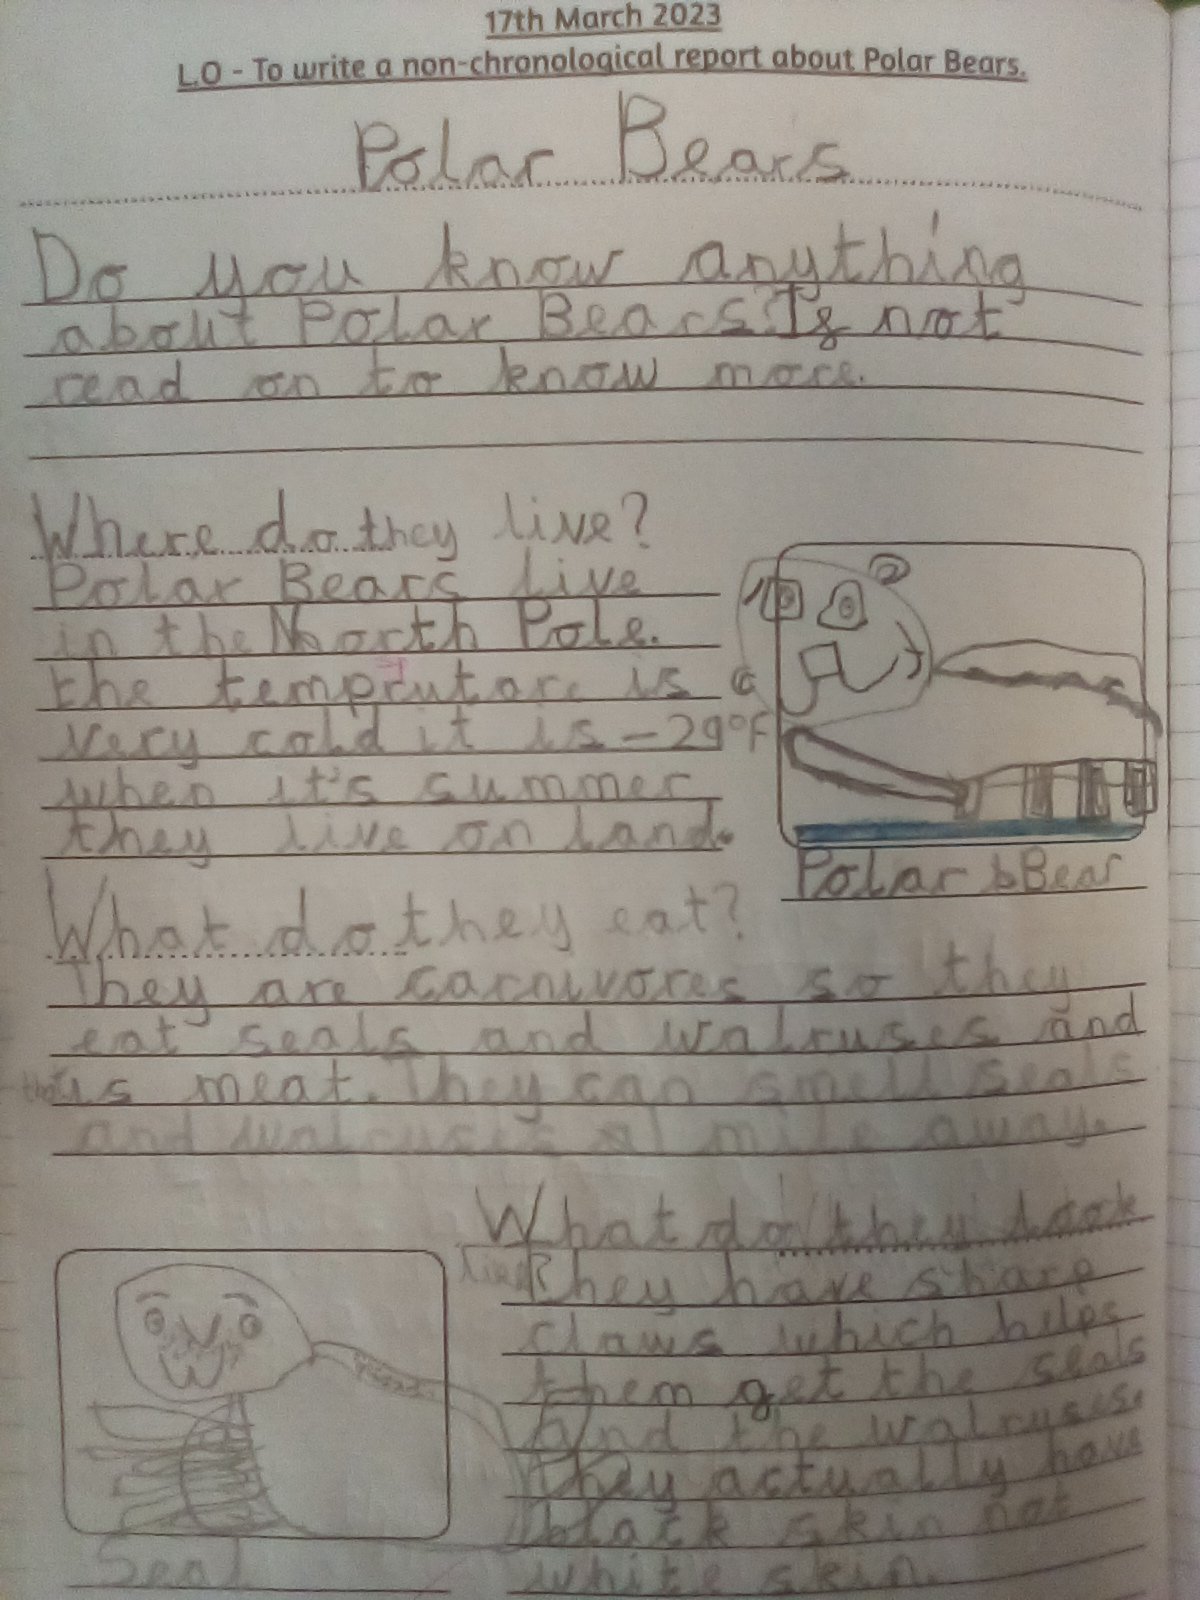 17th March 2023
L.O - To write a non-chronological report about Polar Bears.
Polar Bears
Do you know anything
about Polar Bears? If not
read on to know more.
Where do they live?
Polar Bears live
in the North Pole.
the temprutare is
very cold it is -29°F
when it's summer
they live on land.
Polar bBear
What do they eat?
They are carnivores so they
eat seals and walruses and
this is meat. They can smell seals
and walruses a mile away.
What do they look
like?
They have sharp
claws which hilps
them get the seals
And the walruses.
they actually have
black skin not
white skin.
Seal